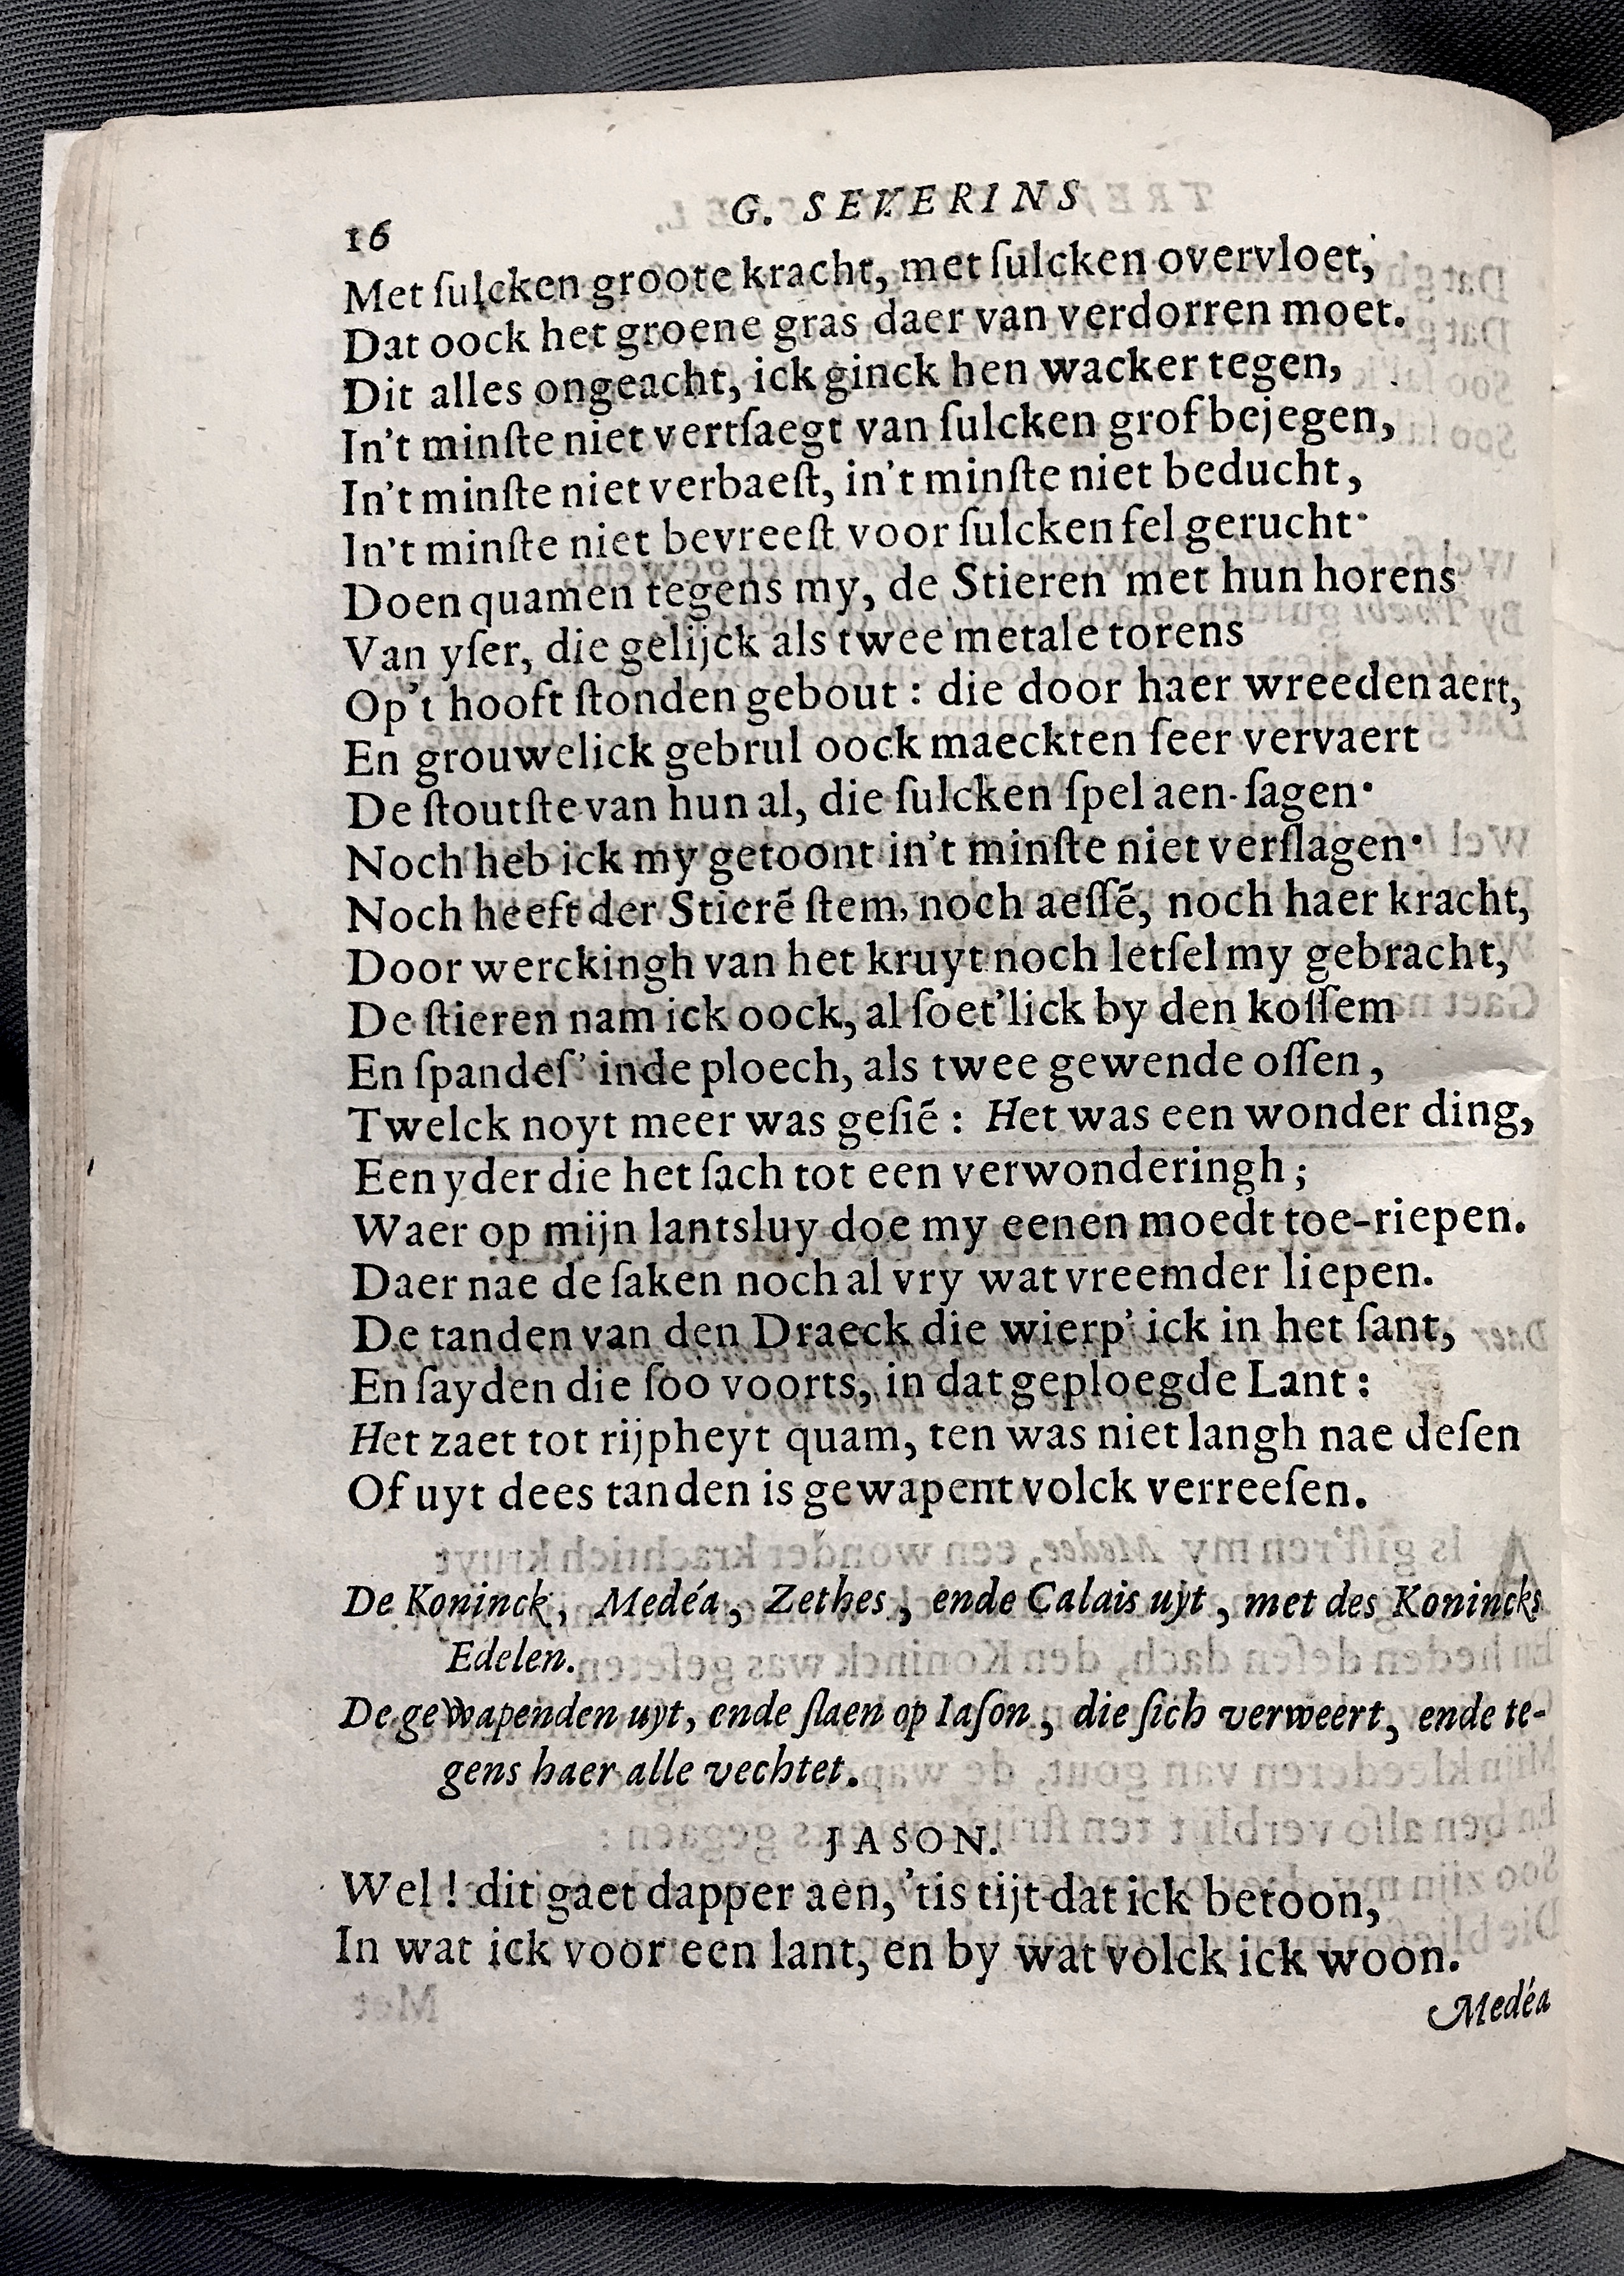 G. SEVERINS
16
Met ſulcken groote kracht, met ſulcken overvloet,
Dat oock het groene gras daer van verdorren moet.
Dit alles ongeacht, ick ginck hen wacker tegen,
In't minſte niet vertſaegt van ſulcken grof bejegen,
In't minſte niet verbaeſt, in't minſte niet beducht,
In't minſte niet bevreeſt voor ſulcken fel gerucht·
Doen quamen tegens my, de Stieren met hun horens
Van yſer, die gelijck als twee metale torens
Op't hooft ſtonden gebout: die door haer wreeden aert,
En grouwelick gebrul oock maeckten ſeer vervaert
De ſtoutſte van hun al, die ſulcken ſpel aen-ſagen·
Noch heb ick my getoont in't minſte niet verſlagen·
Noch heeft der Stierẽ ſtem, noch aeſſẽ, noch haer kracht,
Door werckingh van het kruyt noch letſel my gebracht,
De ſtieren nam ick oock, al ſoet'lick by den koſſem
En ſpandeſ' inde ploech, als twee gewende oſſen,
Twelck noyt meer was geſiẽ: Het was een wonder ding,
Een yder die het ſach tot een verwonderingh;
Waer op mijn lantsluy doe my eenen moedt toe-riepen.
Daer nae de ſaken noch al vry wat vreemder liepen.
De tanden van den Draeck die wierp' ick in het ſant,
En ſayden die ſoo voorts, in dat geploegde Lant:
Het zaet tot rijpheyt quam, ten was niet langh nae deſen
Of uyt dees tanden is gewapent volck verreeſen.
De Koninck, Medéa, Zethes, ende Calais uyt, met des Konincks
Edelen.
De gewapenden uyt, ende ſlaen op Iaſon, die ſich verweert, ende te-
gens haer alle vechtet.
JASON.
Wel! dit gaet dapper aen, 'tis tijt dat ick betoon,
In wat ick voor een lant, en by wat volck ick woon.
Medéa